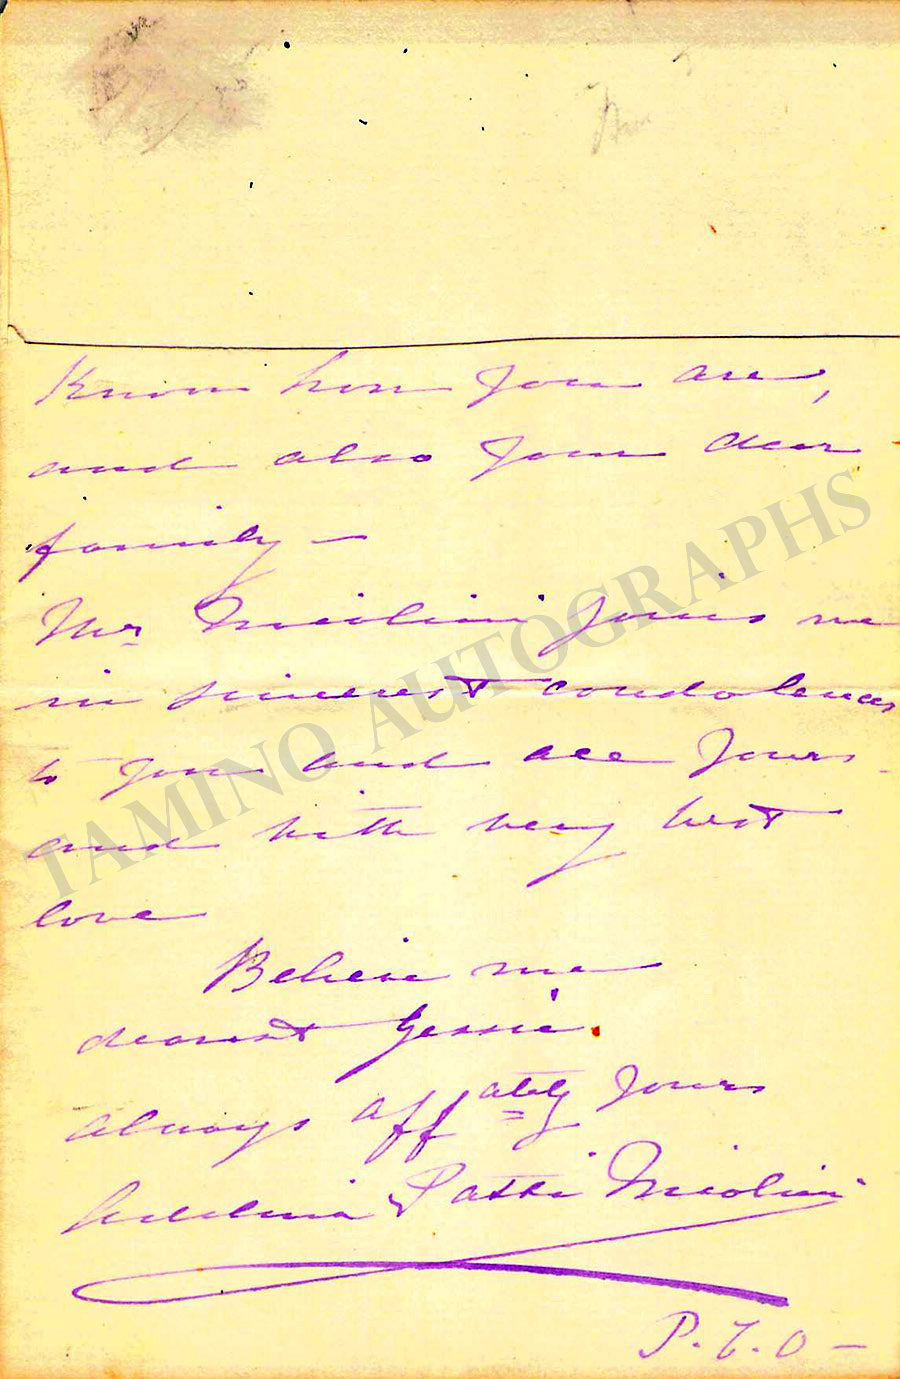 Know how you are,
and also your dear
family —
Mr Nicolini joins me
in sincerest condolences
to you and all yours
and with very best
love
Believe me
dearest Jessie.
always affately yours
Adelina Patti Nicolini
P.T.O —
TAMINO AUTOGRAPHS